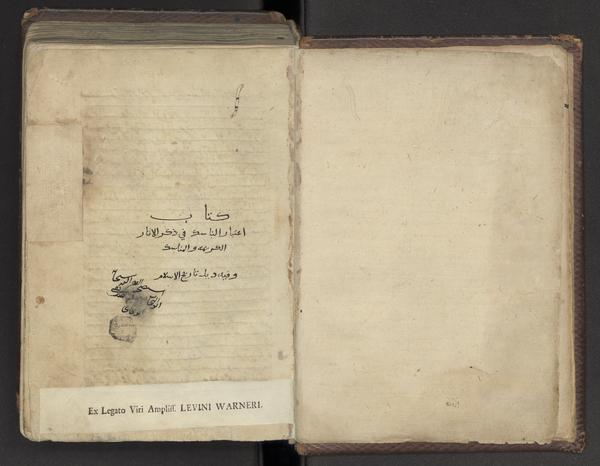 كتاب
اعتبار الناسك في ذكر الاثار
الكريمة والمناسك
وفيه ذيل تاريخ الاسلام
Ex Legato Viri Ampliss. LEVINI WARNERI.